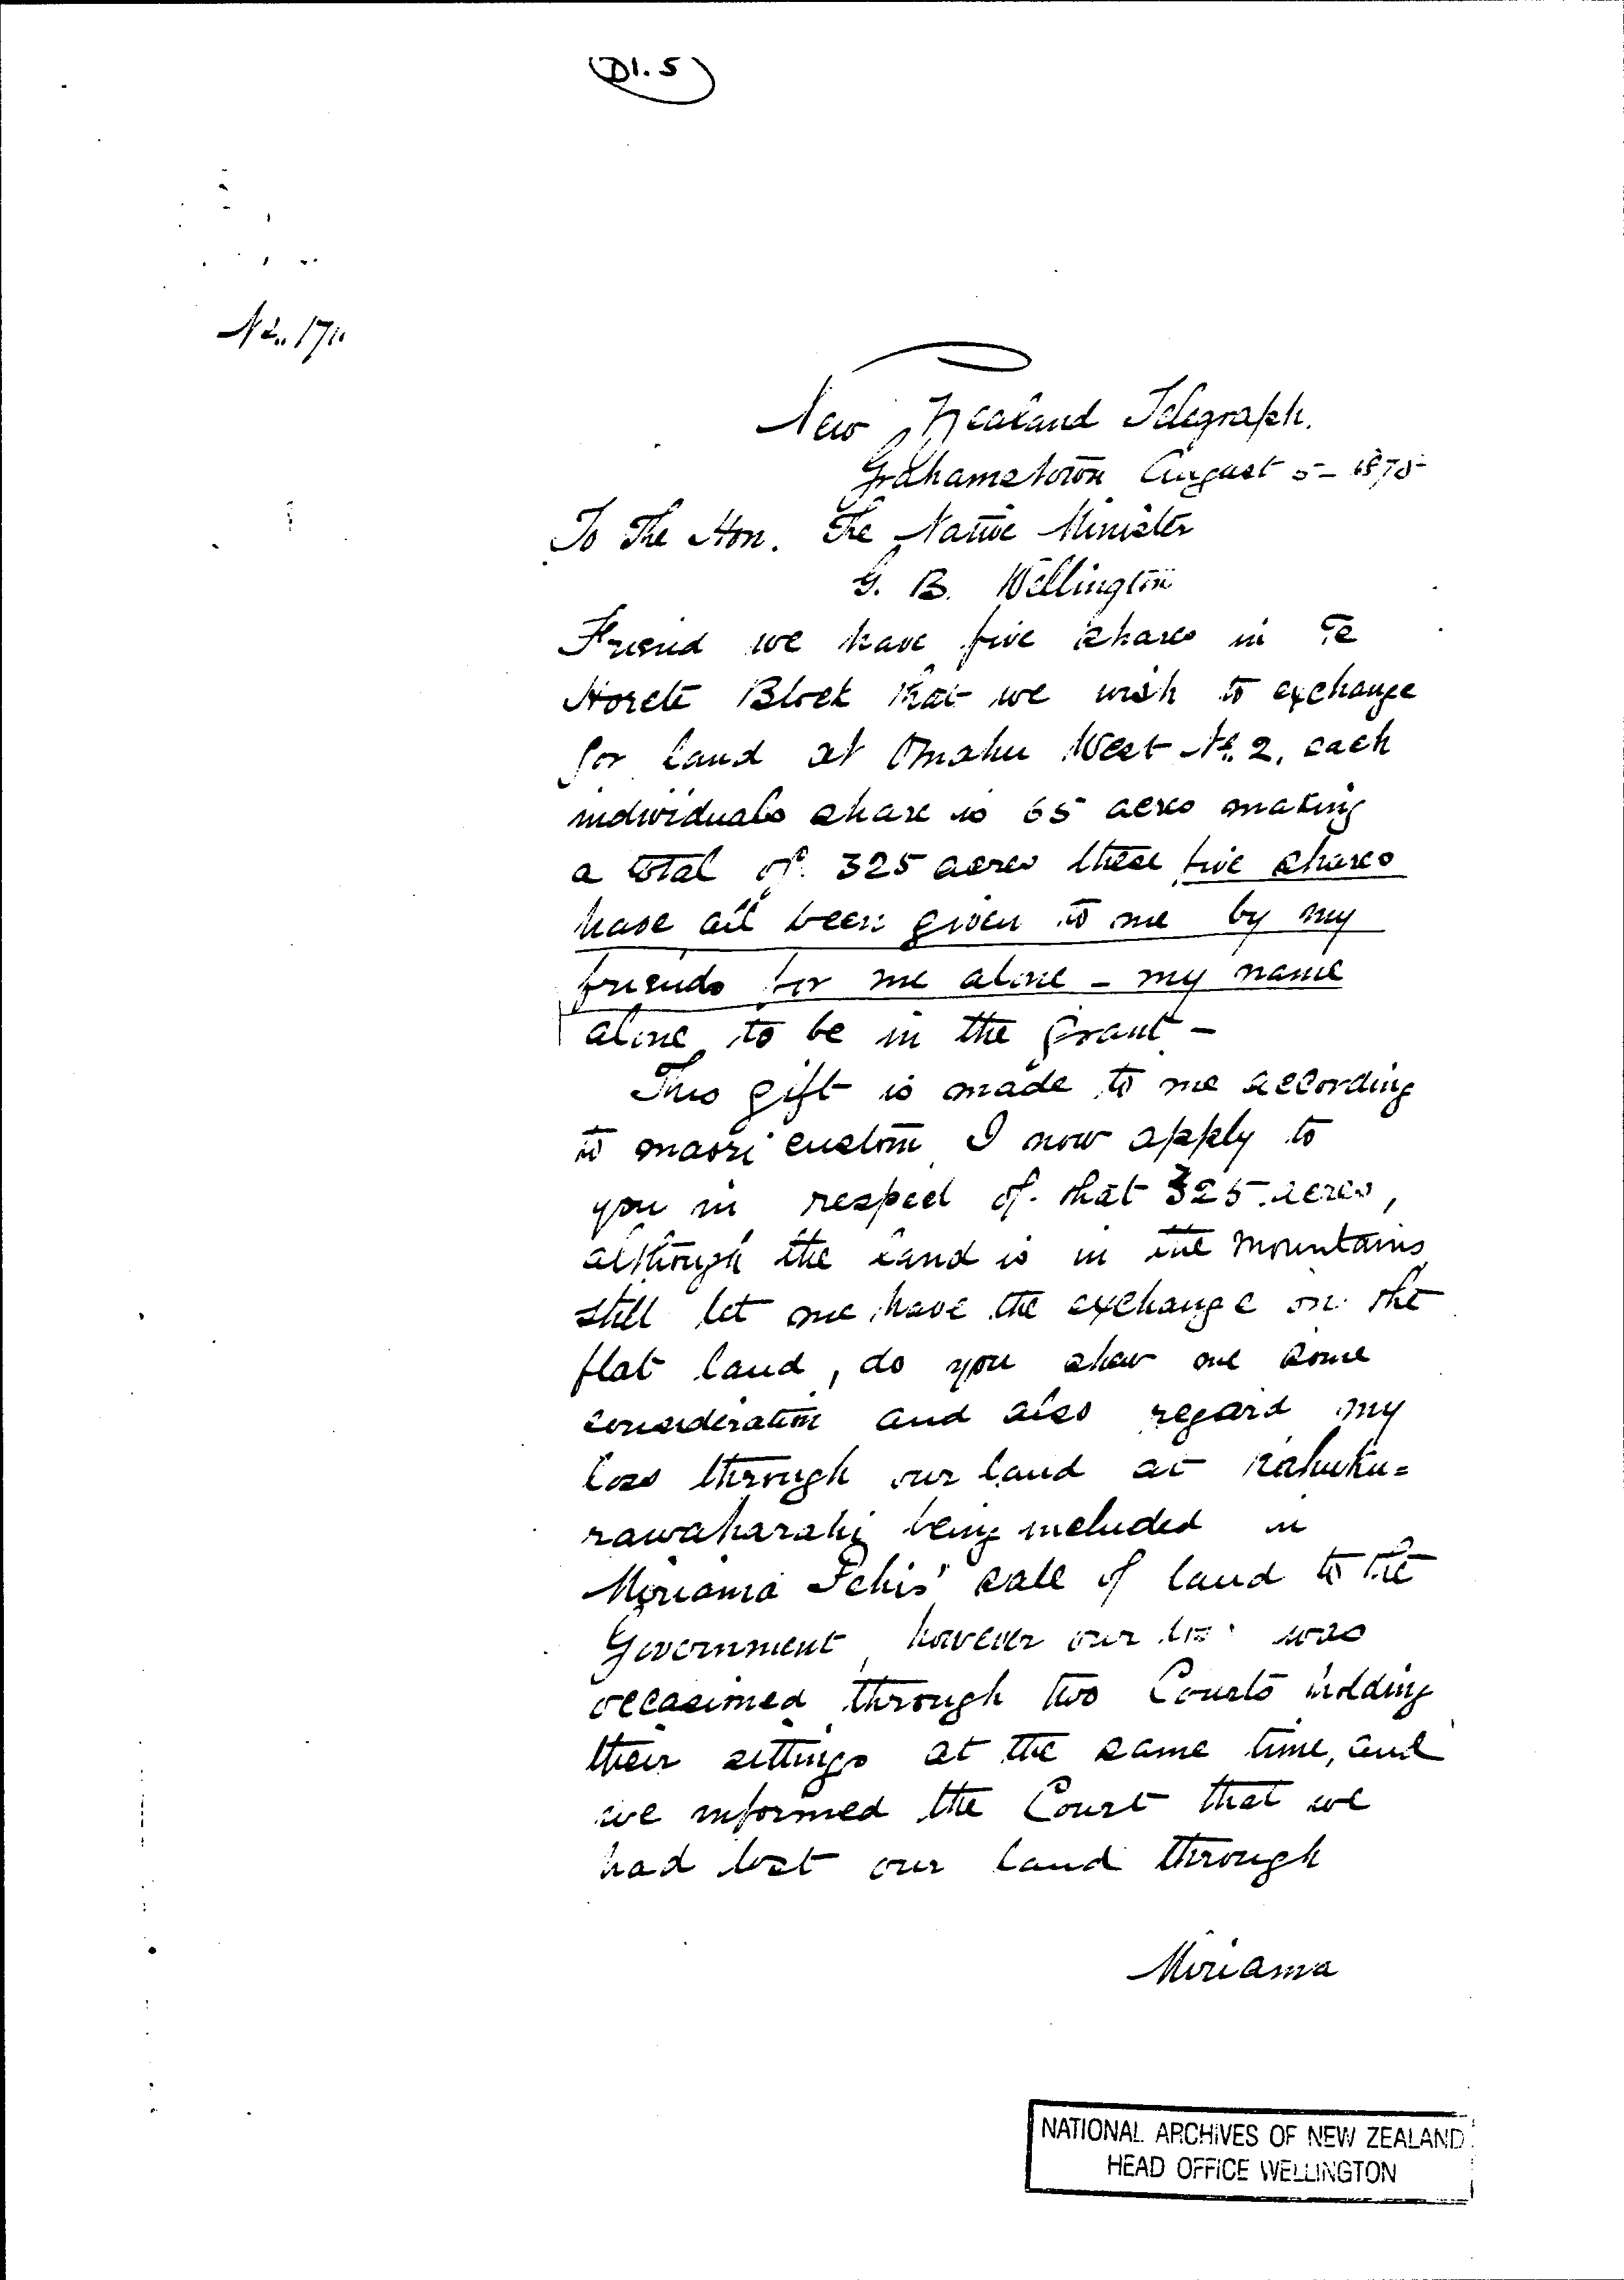 (D1.5)
New Zealand Telegraph.
Grahamstown August 5 - 1875
To The Hon. The Native Minister
G. B. Wellington
Friend we have five shares in Te
Horete Block that we wish to exchange
for land at Omahu West No. 2, each
individuals share is 65 acres making
a total of 325 acres these five shares
have all been given to me by my
friends for me alone - my name
alone to be in the Grant -
This gift is made to me according
to maori custom I now apply to
you in respect of that 325 acres,
although the land is in the mountains
still let me have the exchange on the
flat land, do you shew me some
consideration and also regard my
loss through our land at
being included in
Miriama Pehis' sale of land to the
Government, however our loss was
occasioned through two Courts holding
their sittings at the same time, and
we informed the Court that we
had lost our land through
Miriama
NATIONAL ARCHIVES OF NEW ZEALAND
HEAD OFFICE WELLINGTON